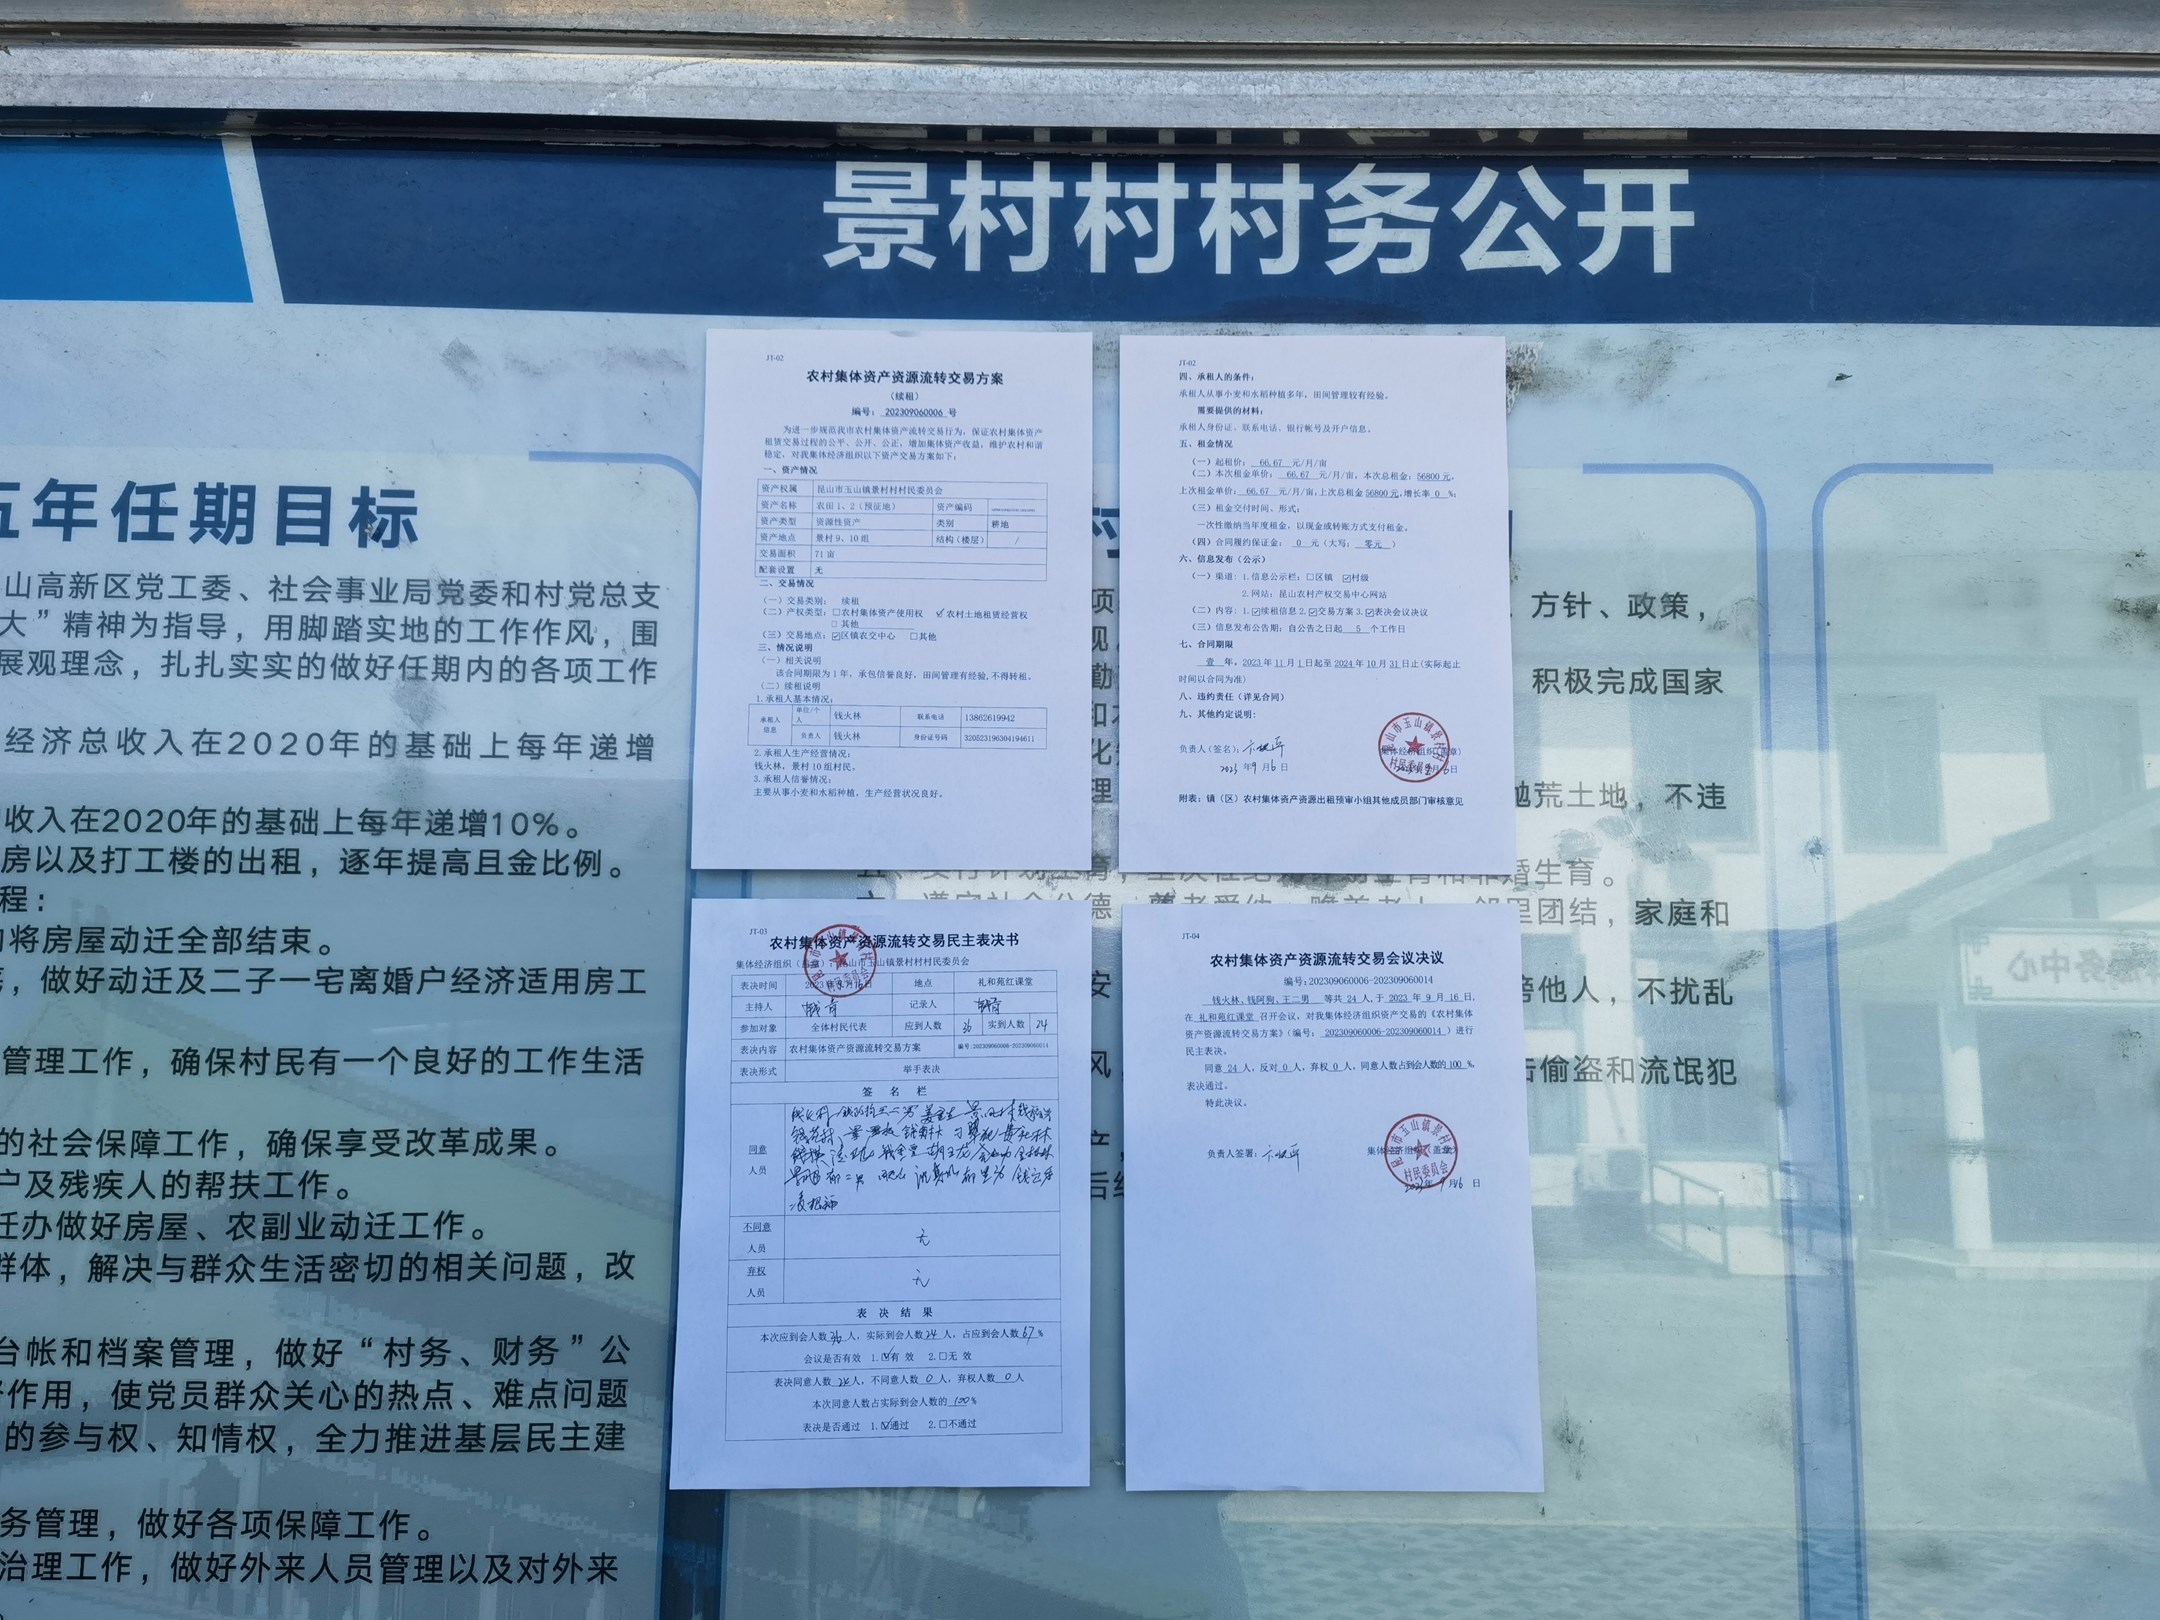 景村村村务公开
五年任期目标
山高新区党工委、社会事业局党委和村党总支
大”精神为指导，用脚踏实地的工作作风，围
展观理念，扎扎实实的做好任期内的各项工作
经济总收入在2020年的基础上每年递增
收入在2020年的基础上每年递增10%。
房以及打工楼的出租，逐年提高且金比例。
程：
将房屋动迁全部结束。
，做好动迁及二子一宅离婚户经济适用房工
管理工作，确保村民有一个良好的工作生活
的社会保障工作，确保享受改革成果。
户及残疾人的帮扶工作。
迁办做好房屋、农副业动迁工作。
群体，解决与群众生活密切的相关问题，改
台帐和档案管理，做好“村务、财务”公
作用，使党员群众关心的热点、难点问题
的参与权、知情权，全力推进基层民主建
务管理，做好各项保障工作。
治理工作，做好外来人员管理以及对外来
JT-02
农村集体资产资源流转交易方案
（续租）
编号： 202309060006 号
为进一步规范我市农村集体资产流转交易行为，保证农村集体资产
租赁交易过程的公平、公开、公正，增加集体资产收益，维护农村和谐
稳定，对我集体经济组织以下资产交易方案如下：
一、资产情况
资产权属 昆山市玉山镇景村村村民委员会
资产名称 农田1、2（预征地） 资产编码
资产类型 资源性资产 类别 耕地
资产地点 景村9、10组 结构（楼层） /
交易面积 71亩
配套设置 无
二、交易情况
（一）交易类别： 续租
（二）产权类型：□农村集体资产使用权 ☑农村土地租赁经营权
□ 其他
（三）交易地点：☑区镇农交中心 □其他
三、情况说明
（一）相关说明
该合同期限为1年，承包信誉良好，田间管理有经验,不得转租。
（二）续租说明
1.承租人基本情况：
承租人信息 单位/个人 钱火林 联系电话 13862619942
负责人 钱火林 身份证号码 320523196304194611
2.承租人生产经营情况：
钱火林，景村10组村民。
3.承租人信誉情况：
主要从事小麦和水稻种植，生产经营状况良好。
JT-02
四、承租人的条件：
承租人从事小麦和水稻种植多年，田间管理较有经验。
需要提供的材料：
承租人身份证、联系电话、银行帐号及开户信息。
五、租金情况
（一）起租价： 66.67 元/月/亩
（二）本次租金单价： 66.67 元/月/亩，本次总租金：56800元，
上次租金单价：66.67 元/月/亩,上次总租金56800元,增长率 0 %；
（三）租金交付时间、形式：
一次性缴纳当年度租金，以现金或转账方式支付租金。
（四）合同履约保证金： 0 元（大写： 零元 ）
六、信息发布（公示）
（一）渠道：1.信息公示栏：□区镇 ☑村级
2.网站：昆山农村产权交易中心网站
（二）内容：1.☑续租信息2.☑交易方案3.☑表决会议决议
（三）信息发布公告期：自公告之日起 5 个工作日
七、合同期限
壹 年。2023年11月1日起至2024年10月31日止(实际起止
时间以合同为准)
八、违约责任（详见合同）
九、其他约定说明：
负责人（签名）：
集体经济组织（盖章）
2023年9月16日
附表：镇（区）农村集体资产资源出租预审小组其他成员部门审核意见
JT-03
农村集体资产资源流转交易民主表决书
集体经济组织（盖章）：昆山市玉山镇景村村村民委员会
表决时间 2023年9月16日 地点 礼和苑红课堂
主持人 记录人
参加对象 全体村民代表 应到人数 36 实到人数 24
表决内容 农村集体资产资源流转交易方案 编号:202309060006-202309060014
表决形式 举手表决
签 名 栏
同意人员
不同意人员 无
弃权人员 无
表 决 结 果
本次应到会人数36人，实际到会人数24人，占应到会人数67%
会议是否有效 1.☑有 效 2.□无 效
表决同意人数24人，不同意人数0人，弃权人数0人
本次同意人数占实际到会人数的100%
表决是否通过 1.☑通过 2.□不通过
JT-04
农村集体资产资源流转交易会议决议
编号:202309060006-202309060014
钱火林、钱阿狗、王二男 等共24人,于2023年9月16日,
在 礼和苑红课堂 召开会议，对我集体经济组织资产交易的《农村集体
资产资源流转交易方案》（编号：202309060006-202309060014）进行
民主表决。
同意24人，反对0人，弃权0人，同意人数占到会人数的100%，
表决通过。
特此决议。
负责人签署：
集体经济组织（盖章）
2023年9月16日
方针、政策，
积极完成国家
抛荒土地，不违
婚生育。
里团结，家庭和
他人，不扰乱
偷盗和流氓犯